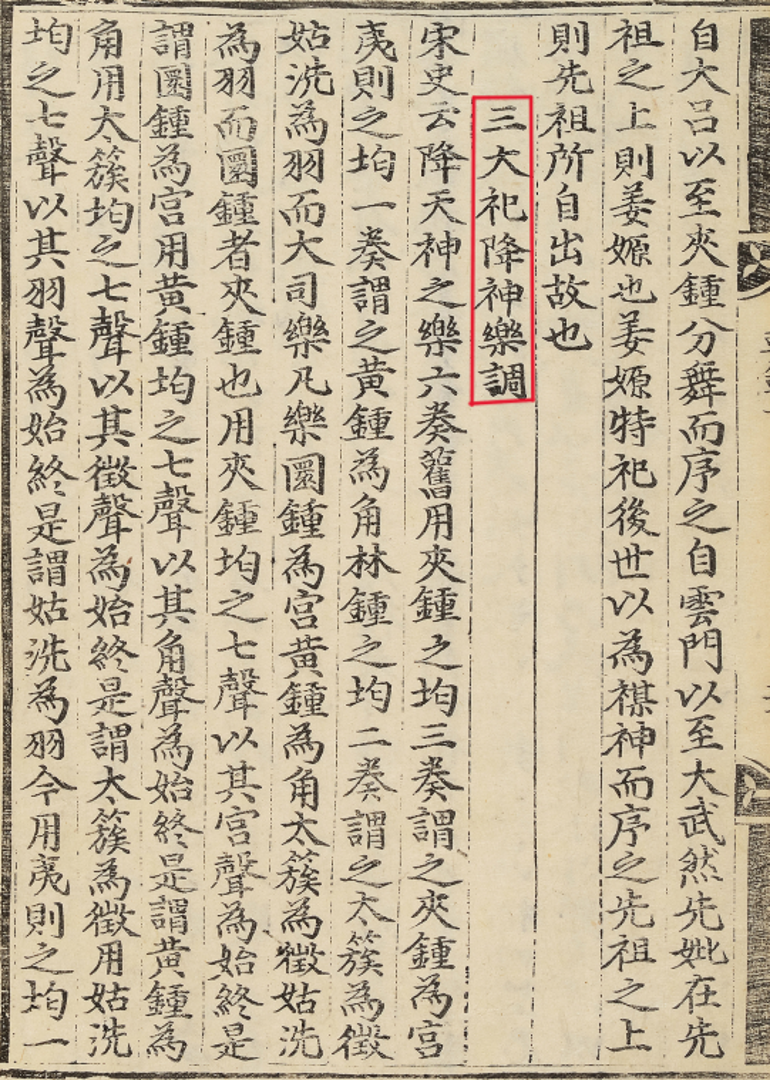 自大呂以至夾鍾分舞而序之自雲門以至大武然先妣在先
祖之上則姜嫄也姜嫄特祀後世以為禖神而序之先祖之上
則先祖所自出故也
三大祀降神樂調
宋史云降天神之樂六奏舊用夾鍾之均三奏謂之夾鍾為宮
夷則之均一奏謂之黃鍾為角林鍾之均二奏謂之太簇為徵
姑洗為羽而大司樂凡樂圜鍾為宮黃鍾為角太簇為徵姑洗
為羽而圜鍾者夾鍾也用夾鍾均之七聲以其宮聲為始終是
謂圜鍾為宮用黃鍾均之七聲以其角聲為始終是謂黃鍾為
角用太簇均之七聲以其徵聲為始終是謂太簇為徵用姑洗
均之七聲以其羽聲為始終是謂姑洗為羽今用夷則之均一